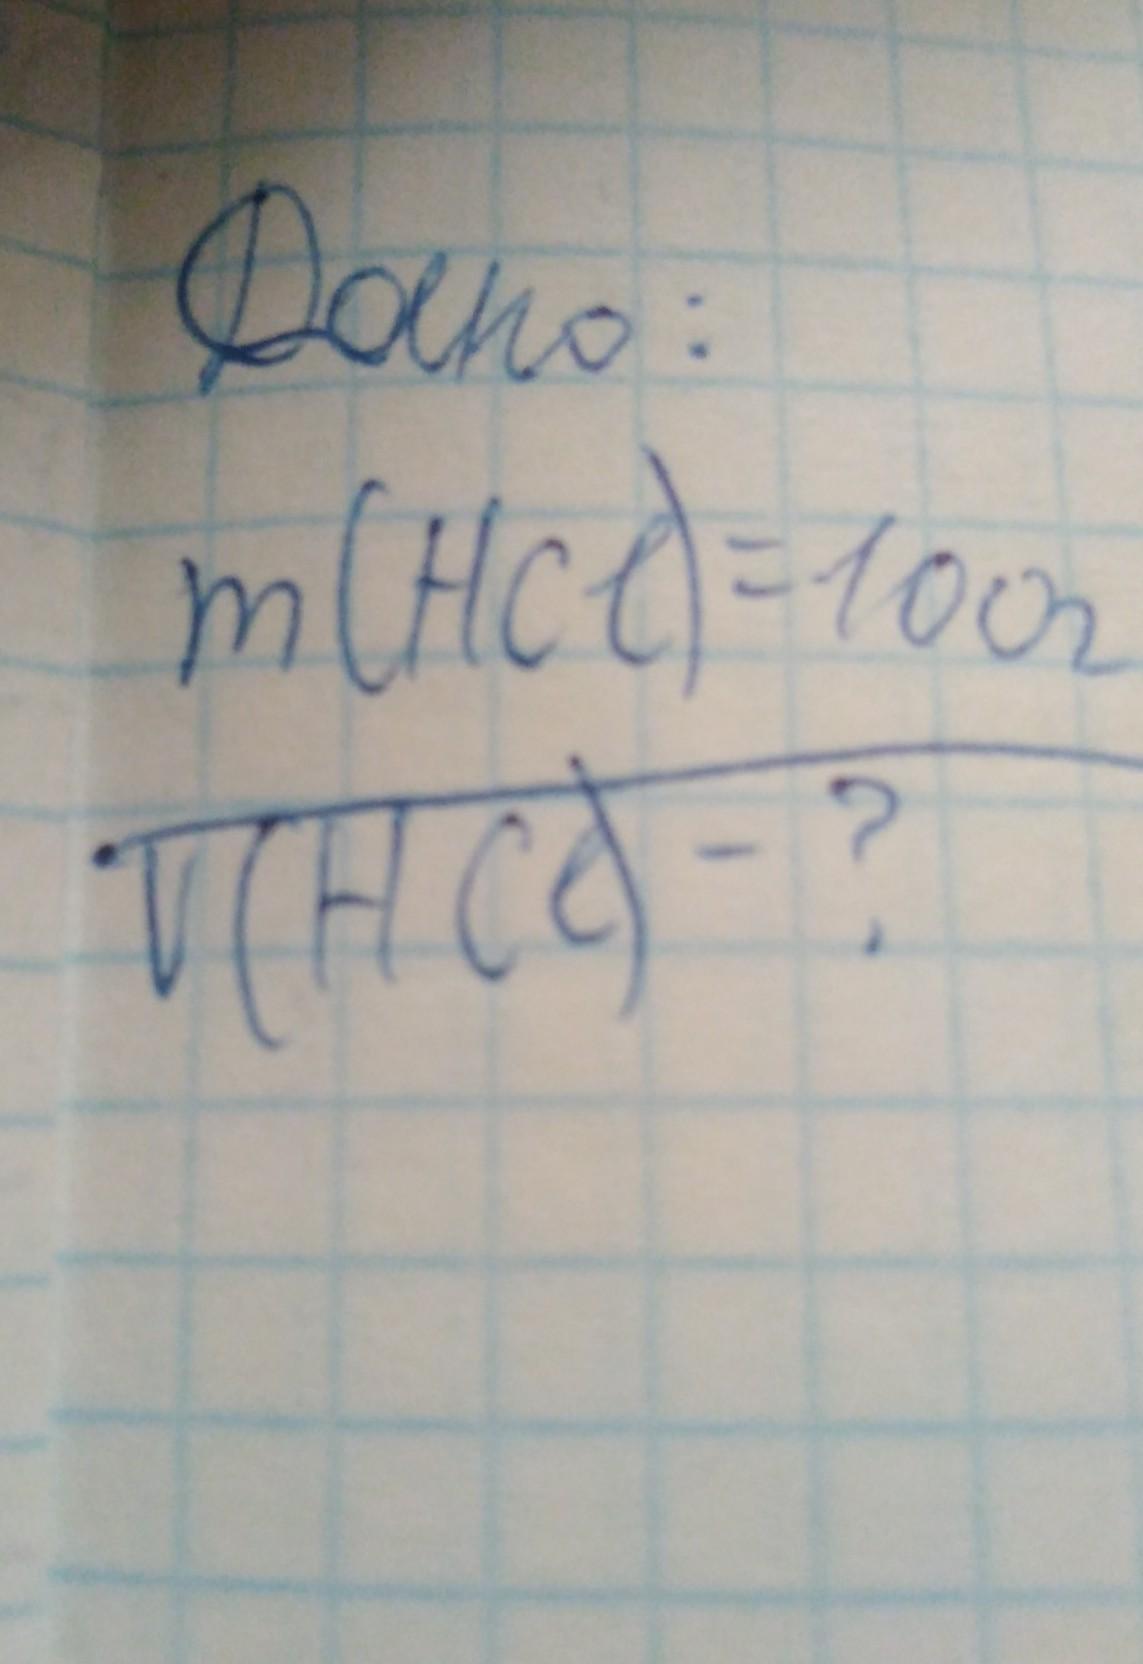 Дано:
m(HCl)=100г
V(HCl) - ?